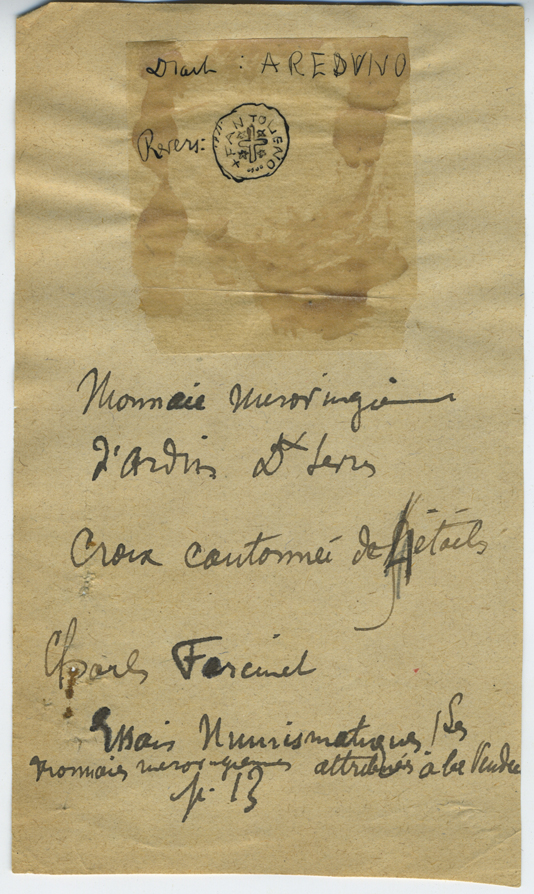 Droit : AREDVNO
Revers:
+ FANTOLIENO
Monnaie merovingienne
d'Ardin Dx Sevres
Croix cantonnée de 4 étoiles
Charles Farcinet
Essais Numismatiques / Les
monnaies merovingiennes attribuées à la Vendée
p. 13